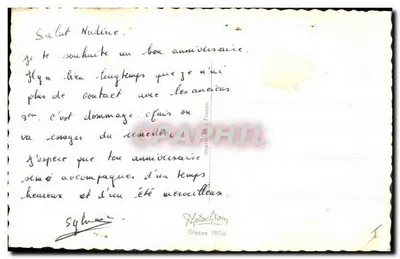 Salut Nadine.
je te souhaite un bon anniversaire.
Il y a bien longtemps que je n'ai
plus de contact avec les anciens
c'est dommage. Mais on
va essayer du remedier
J'espere que ton anniversaire
sera accompagnes d'un temps
heureux et d'un été merveilleux.
Sylvain
CPAPHIL